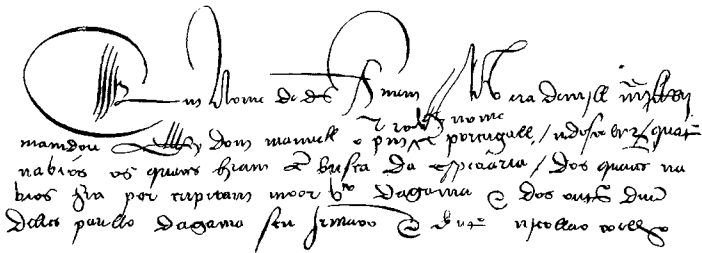 Em Nome de ds Amem Na era de mill iiijc Lrvij
mamdou EllRey dom manuell o prim.ro deste nome em portugall / a descobrir / quatro
nabios os quaes hiam em busca da espeçiaria / dos quaes na
bios hia por capitam moor Vco dagama e dos outros duũ
delles paullo dagama seu Irmaoo e do outro nycollao coelho